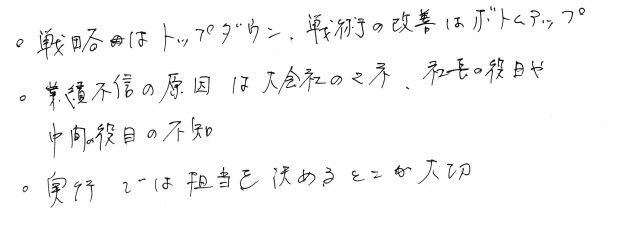 。戦略はトップダウン、戦術の改善はボトムアップ
。業績不信の原因は大会社の、社長の役目や
中間の役目の不知
。実行では担当を決めることが大切